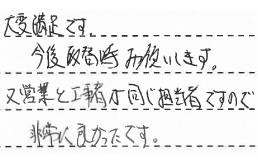 大変満足です。
今後取替時お願いします。
又営業と工事者が同じ担当者ですので
非常に良かったです。